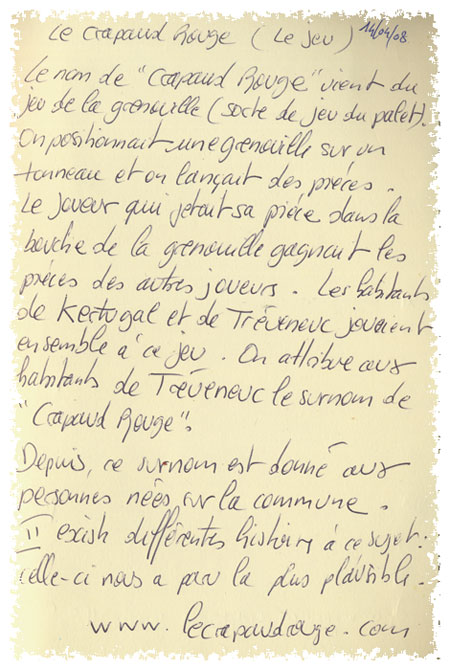 Le Crapaud Rouge ( Le jeu ) 14/04/08
Le nom de "Crapaud Rouge" vient du
jeu de la grenouille (sorte de jeu du palet).
On positionnait une grenouille sur un
tonneau et on lançait des pièces.
Le joueur qui jetait sa pièce dans la
bouche de la grenouille gagnait les
pièces des autres joueurs. Les habitants
de Kertugal et de Tréveneuc jouaient
ensemble à ce jeu. On attribue aux
habitants de Tréveneuc le surnom de
"Crapaud Rouge".
Depuis, ce surnom est donné aux
personnes nées sur la commune.
Il existe différentes histoires à ce sujet.
celle-ci nous a paru la plus plausible.
www.lecrapaudrouge.com